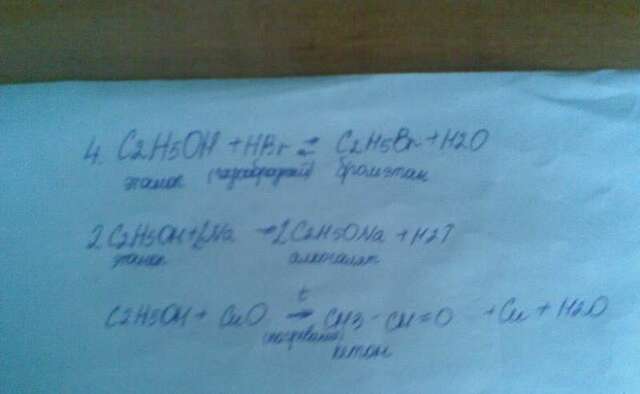 4. C2H5OH + HBr ⇄ C2H5Br + H2O
этанол бромэтан
2 C2H5OH + 2Na → 2 C2H5ONa + H2↑
этанол алкоголят
t
C2H5OH + CuO → CH3 - CH=O + Cu + H2O
(нагревание) кетон